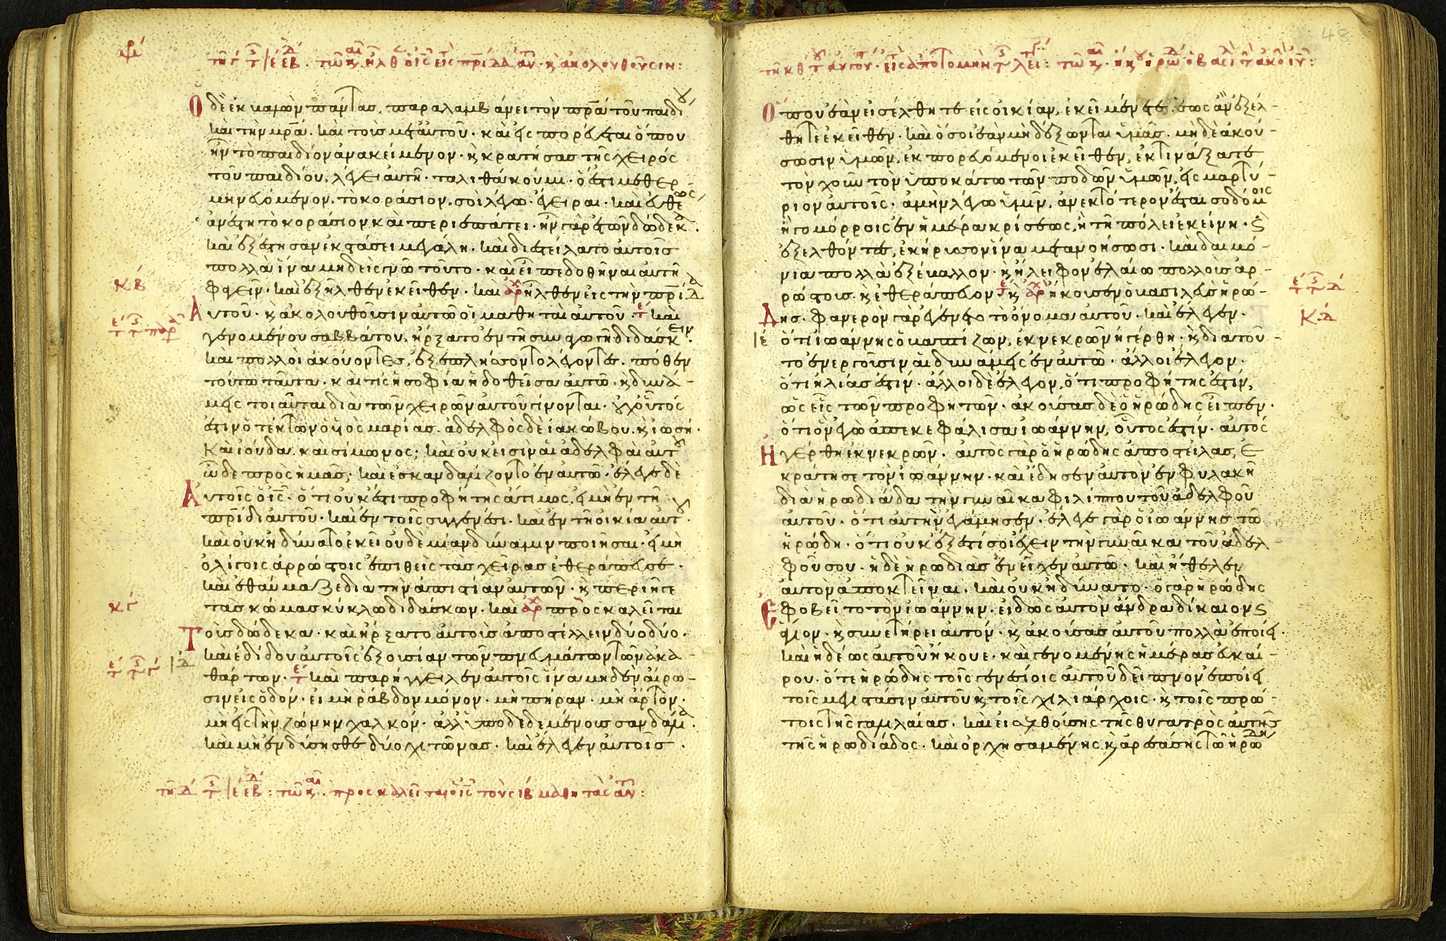 ὁ δὲ ἐκβαλὼν πάντας, παραλαμβάνει τὸν πρα τοῦ παιδί
καὶ τὴν μρα. καὶ τοὺς μετ αὐτοῦ· καὶ εἰσπορεύεται ὅπου
ἦν τὸ παιδίον ἀνακείμενον· κ κρατήσας τῆς χειρὸς
τοῦ παιδίου, λέγει αὐτῆ· ταλιθὰ κούμι· ὅ ἐστι μεθερ
μηνευόμενον, τὸ κοράσιον, σοὶ λέγω ἔγειραι· καὶ εὐθέως
ἀνέστη τὸ κοράσιον καὶ περιεπάτει· ἦν γὰρ ἐτῶν δώδεκα
καὶ ἐξέστησαν ἐκστάσει μεγάλη· καὶ διεστείλατο αὐτοῖς
πολλὰ ἵνα μηδεὶς γνῶ τοῦτο· καὶ εἶπε δοθῆναι αὐτῆ
φαγεῖν· καὶ ἐξῆλθεν ἐκεῖθεν· καὶ ἦλθεν εἰς τὴν πρίδα
αὐτοῦ· κ ἀκολουθοῦσιν αὐτῶ οἱ μαθηταὶ αὐτοῦ· καὶ
γενομένου σαββάτου, ἤρξατο ἐν τῆ συναγωγῆ διδάσκειν
καὶ πολλοὶ ἀκούοντες, ἐξεπλήσσοντο λέγοντες· πόθεν
τούτω ταῦτα· καὶ τίς ἡ σοφία ἡ δοθεῖσα αὐτῶ· κ δυνά
μεις τοιαῦται διὰ τῶν χειρῶν αὐτοῦ γίνονται· οὐχ οὗτός
ἐστιν ὁ τέκτων ὁ υἱὸς μαρίας· ἀδελφὸς δὲ ἰακώβου. κ ἰωσῆ·
καὶ ἰούδα. καὶ σίμωνος; καὶ οὐκ εἰσὶν αἱ ἀδελφαὶ αὐτοῦ
ὧδε πρὸς ἡμᾶς; καὶ ἐσκανδαλίζοντο ἐν αὐτῶ· ἔλεγε δὲ
αὐτοῖς ὁ ις· ὅτι οὐκ ἔστι προφήτης ἄτιμος, εἰ μὴ ἐν τῆ
πρίδι αὐτοῦ· καὶ ἐν τοῖς συγγενέσι· καὶ ἐν τῆ οἰκία αὐτοῦ
καὶ οὐκ ἠδύνατο ἐκεῖ οὐδεμίαν δύναμιν ποιῆσαι· εἰ μὴ
ὀλίγοις ἀρρώστοις ἐπιθεὶς τὰς χεῖρας ἐθεράπευσε·
καὶ ἐθαύμαζε διὰ τὴν ἀπιστίαν αὐτῶν· κ περιῆγε
τὰς κώμας κύκλω διδάσκων· καὶ προσκαλεῖται
τοὺς δώδεκα· καὶ ἤρξατο αὐτοὺς ἀποστέλλειν δύο δύο·
καὶ ἐδίδου αὐτοῖς ἐξουσίαν τῶν πνευμάτων τῶν ἀκα
θάρτων· καὶ παρήγγειλεν αὐτοῖς ἵνα μηδὲν αἴρω
σιν εἰς ὁδόν· εἰ μὴ ῥάβδον μόνον· μὴ πήραν· μὴ ἄρτον·
μὴ εἰς τὴν ζώνην χαλκόν· ἀλλ ὑποδεδεμένους σανδάλια
καὶ μὴ ἐνδύσησθε δύο χιτῶνας· καὶ ἔλεγεν αὐτοῖς·
ὅπου ἐὰν εἰσέλθητε εἰς οἰκίαν, ἐκεῖ μένετε ἕως ἂν ἐξέλ
θητε ἐκεῖθεν· καὶ ὅσοι ἐὰν μὴ δέξωνται ὑμᾶς· μηδὲ ἀκού
σωσιν ὑμῶν, ἐκπορευόμενοι ἐκεῖθεν, ἐκτινάξατε
τὸν χοῦν τὸν ὑποκάτω τῶν ποδῶν ὑμῶν, εἰς μαρτύ
ριον αὐτοῖς· ἀμὴν λέγω ὑμῖν, ἀνεκτότερον ἔσται σοδόμοις
ἢ γομόρροις ἐν ἡμέρα κρίσεως, ἢ τῆ πόλει ἐκείνη· κ
ἐξελθόντες, ἐκήρυσσον ἵνα μετανοήσωσι· καὶ δαιμό
νια πολλὰ ἐξέβαλλον· κ ἤλειφον ἐλαίω πολλοὺς ἀρ
ρώστους· κ ἐθεράπευον· κ ἤκουσεν ὁ βασιλεὺς ἡρώ
δης· φανερὸν γὰρ ἐγένετο τὸ ὄνομα αὐτοῦ· καὶ ἔλεγεν·
ὅτι ἰωάννης ὁ βαπτίζων, ἐκ νεκρῶν ἠγέρθη· κ διὰ τοῦ
το ἐνεργοῦσιν αἱ δυνάμεις ἐν αὐτῶ· ἄλλοι ἔλεγον·
ὅτι ἠλίας ἐστίν· ἄλλοι δὲ ἔλεγον, ὅτι προφήτης ἐστίν,
ὡς εἷς τῶν προφητῶν· ἀκούσας δὲ ὁ ἡρώδης εἶπεν·
ὅτι ὃν ἐγὼ ἀπεκεφάλισα ἰωάννην, οὗτός ἐστιν· αὐτὸς
ἠγέρθη ἐκ νεκρῶν· αὐτὸς γὰρ ὁ ἡρώδης ἀποστείλας, ἐ
κράτησε τὸν ἰωάννην· καὶ ἔδησεν αὐτὸν ἐν φυλακῆ
διὰ ἡρωδιάδα τὴν γυναῖκα φιλίππου τοῦ ἀδελφοῦ
αὐτοῦ· ὅτι αὐτὴν ἐγάμησεν· ἔλεγε γὰρ ὁ ἰωάννης τῶ
ἡρώδη· ὅτι οὐκ ἔξεστί σοι ἔχειν τὴν γυναῖκα τοῦ ἀδελ
φοῦ σου· ἡ δὲ ἡρωδιὰς ἐνεῖχεν αὐτῶ· καὶ ἤθελεν
αὐτὸν ἀποκτεῖναι· καὶ οὐκ ἠδύνατο· ὁ γὰρ ἡρώδης
ἐφοβεῖτο τὸν ἰωάννην· εἰδὼς αὐτὸν ἄνδρα δίκαιον κ
ἅγιον· κ συνετήρει αὐτόν· κ ἀκούσας αὐτοῦ πολλὰ ἐποίει·
καὶ ἡδέως αὐτοῦ ἤκουε· καὶ γενομένης ἡμέρας εὐκαί
ρου· ὅτε ἡρώδης τοῖς γενεσίοις αὐτοῦ δεῖπνον ἐποίει
τοῖς μεγιστᾶσιν αὐτοῦ κ τοῖς χιλιάρχοις· κ τοῖς πρώ
τοις τῆς γαλιλαίας· καὶ εἰσελθούσης τῆς θυγατρὸς αὐτῆς
τῆς ἡρωδιάδος· καὶ ὀρχησαμένης, κ ἀρεσάσης τῶ ἡρώδη